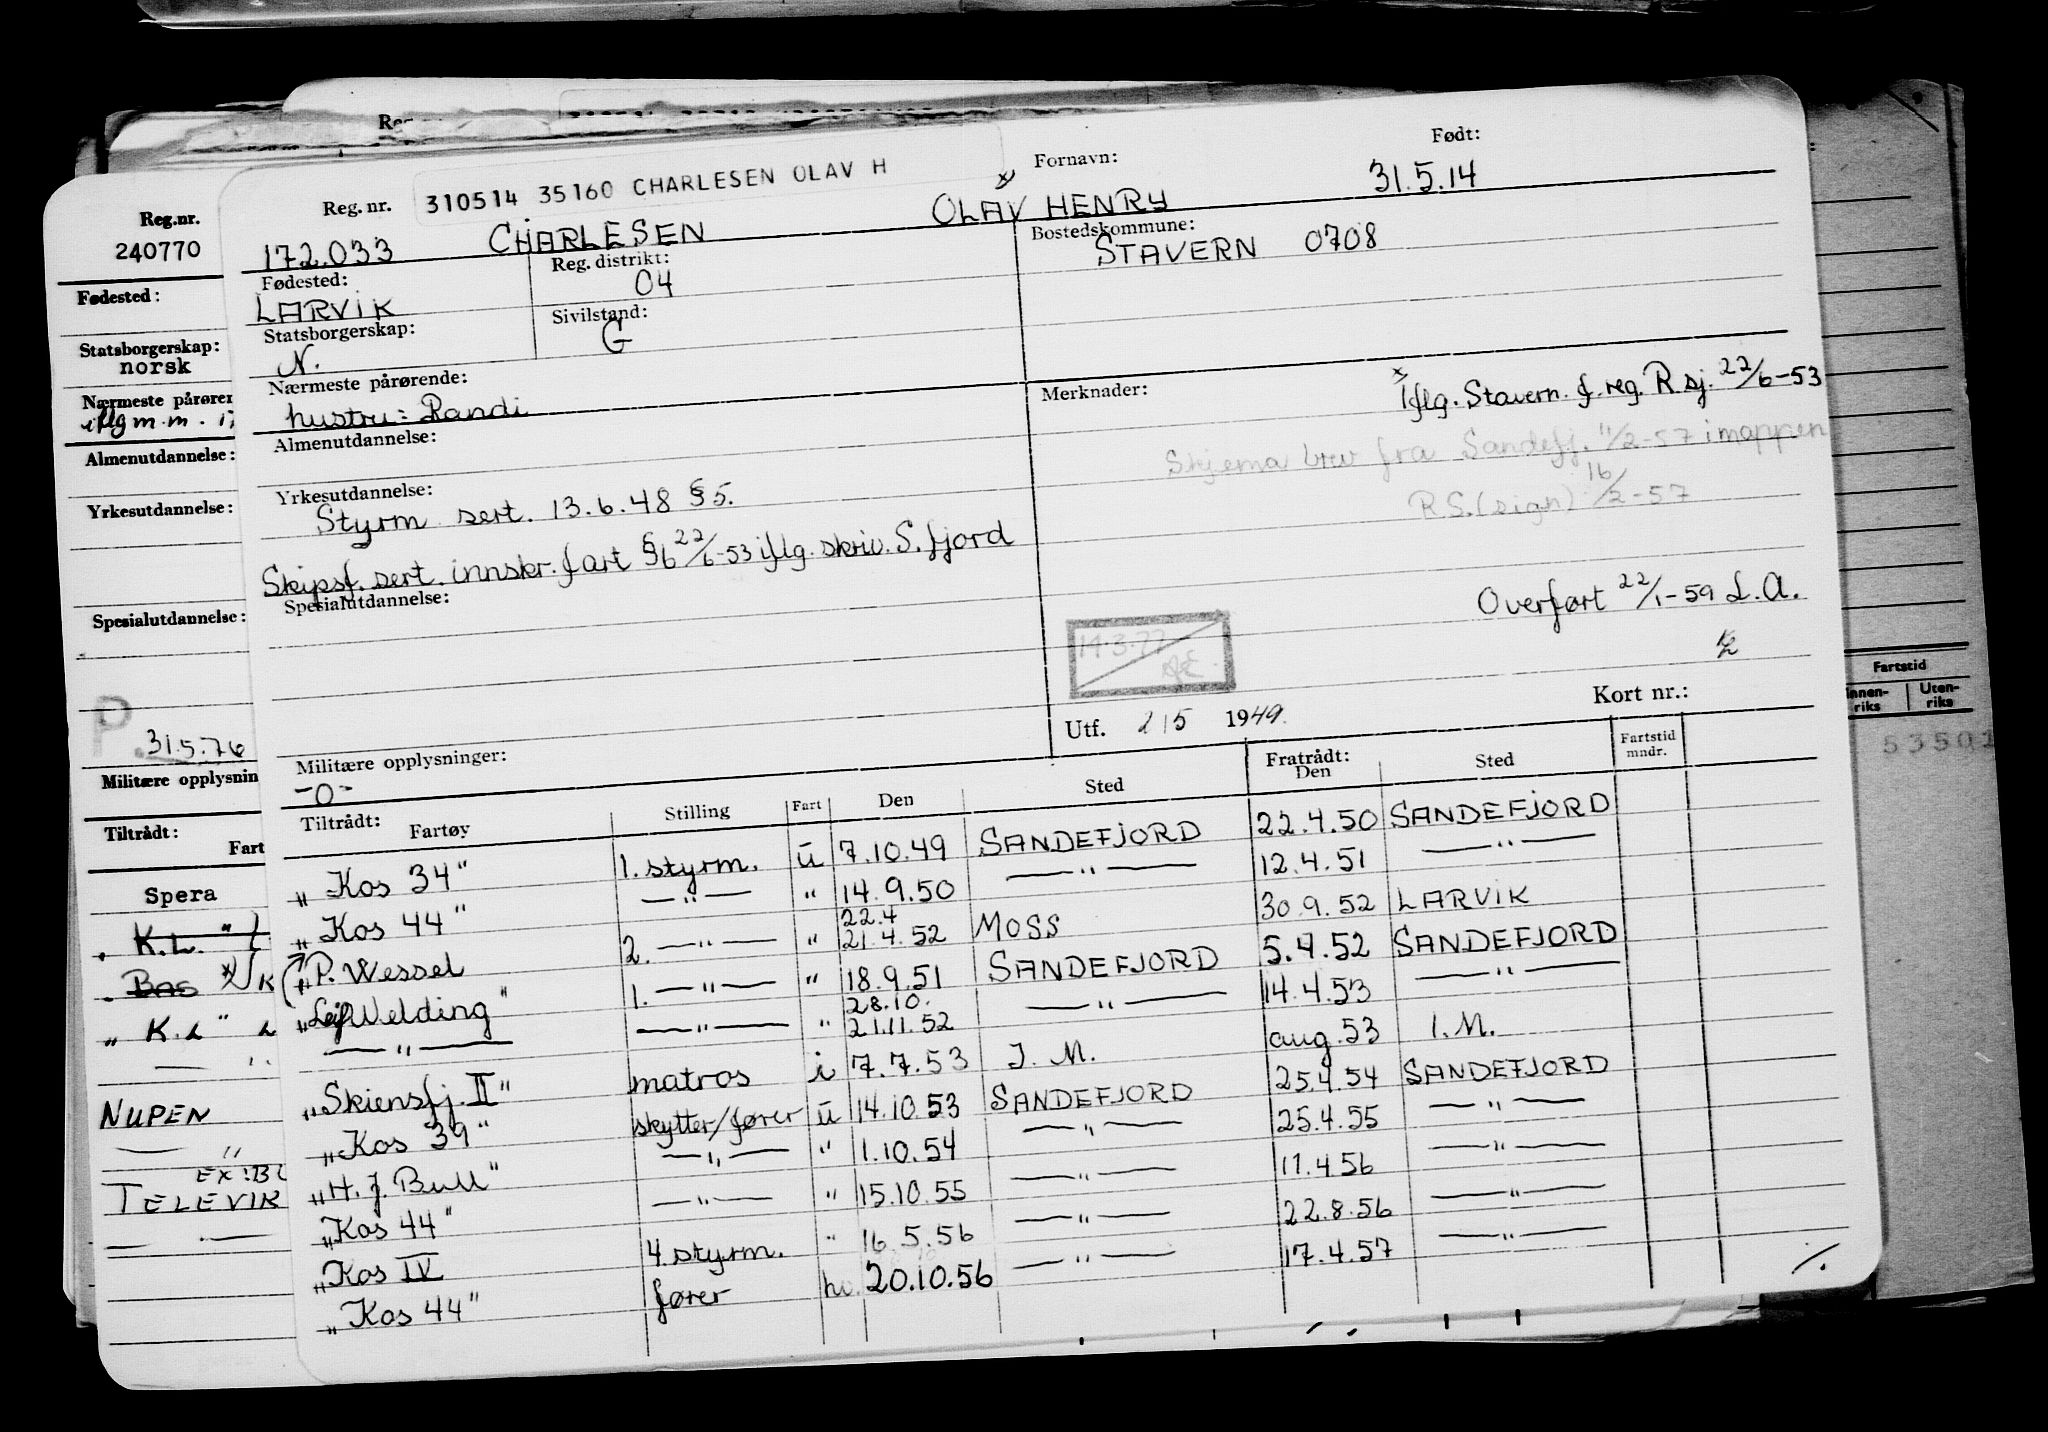 Reg.nr. 310514 35160 CHARLESEN OLAV H
Fornavn: Født:
172.033 CHARLESEN OLAV HENRY 31.5.14
Fødested: Reg. distrikt: Bostedskommune:
LARVIK 04 STAVERN 0708
Statsborgerskap: Sivilstand:
N. G
Nærmeste pårørende: Merknader:
hustru: Randi
Iflg. Stavern f. reg. R sj. 22/6-53
Almenutdannelse:
Skjema brev fra Sandefj. 11/2-57 i mappen
R S. (sign) 16/2-57
Yrkesutdannelse:
Styrm sert. 13.6.48 §5.
Skipsf. sert. innskr. fart §6 22/6-53 iflg. skriv. S. fjord
Spesialutdannelse:
Overført 22/1-59 L.A.
14.3.77
Utf. 2/5 1949. Kort nr.:
Militære opplysninger:
-0-
Tiltrådt: Fartøy Stilling Fart Den Sted Fratrådt: Den Sted Fartstid mndr.
"Kos 34" 1. styrm. u 7.10.49 SANDEFJORD 22.4.50 SANDEFJORD
"Kos 44" —"— " 14.9.50 —"— 12.4.51 —"—
"P. Wessel 2. —"— " 22.4 21.4.52 MOSS 30.9.52 LARVIK
"Leif Welding" 1. —"— " 18.9.51 SANDEFJORD 5.4.52 SANDEFJORD
—"— —"— " 28.10. 21.11.52 —"— 14.4.53 —"—
"Skiensfj. II" matros i 7.7.53 I. M. aug. 53 I. M.
"Kos 39" skytter/fører u 14.10.53 SANDEFJORD 25.4.54 SANDEFJORD
"H. J. Bull" —"— " 1.10.54 —"— 25.4.55 —"—
"Kos 44" —"— " 15.10.55 —"— 17.4.56 —"—
"Kos IV 4. styrm. " 16.5.56 —"— 22.8.56 —"—
"Kos 44" fører hv. 20.10.56 —"— 17.4.57 —"—
Reg.nr.
240770
Fødested:
Statsborgerskap:
norsk
Nærmeste pårører
iflg m.m.
Almenutdannelse:
Yrkesutdannelse:
Spesialutdannelse:
P.
31.5.76
Militære opplysnin
Tiltrådt:
Fart
Spera
K.L. "
Bas
" K.L "
NUPEN
—"
EX:
TELEVIK
Fartstid
innen-riks Uten-riks